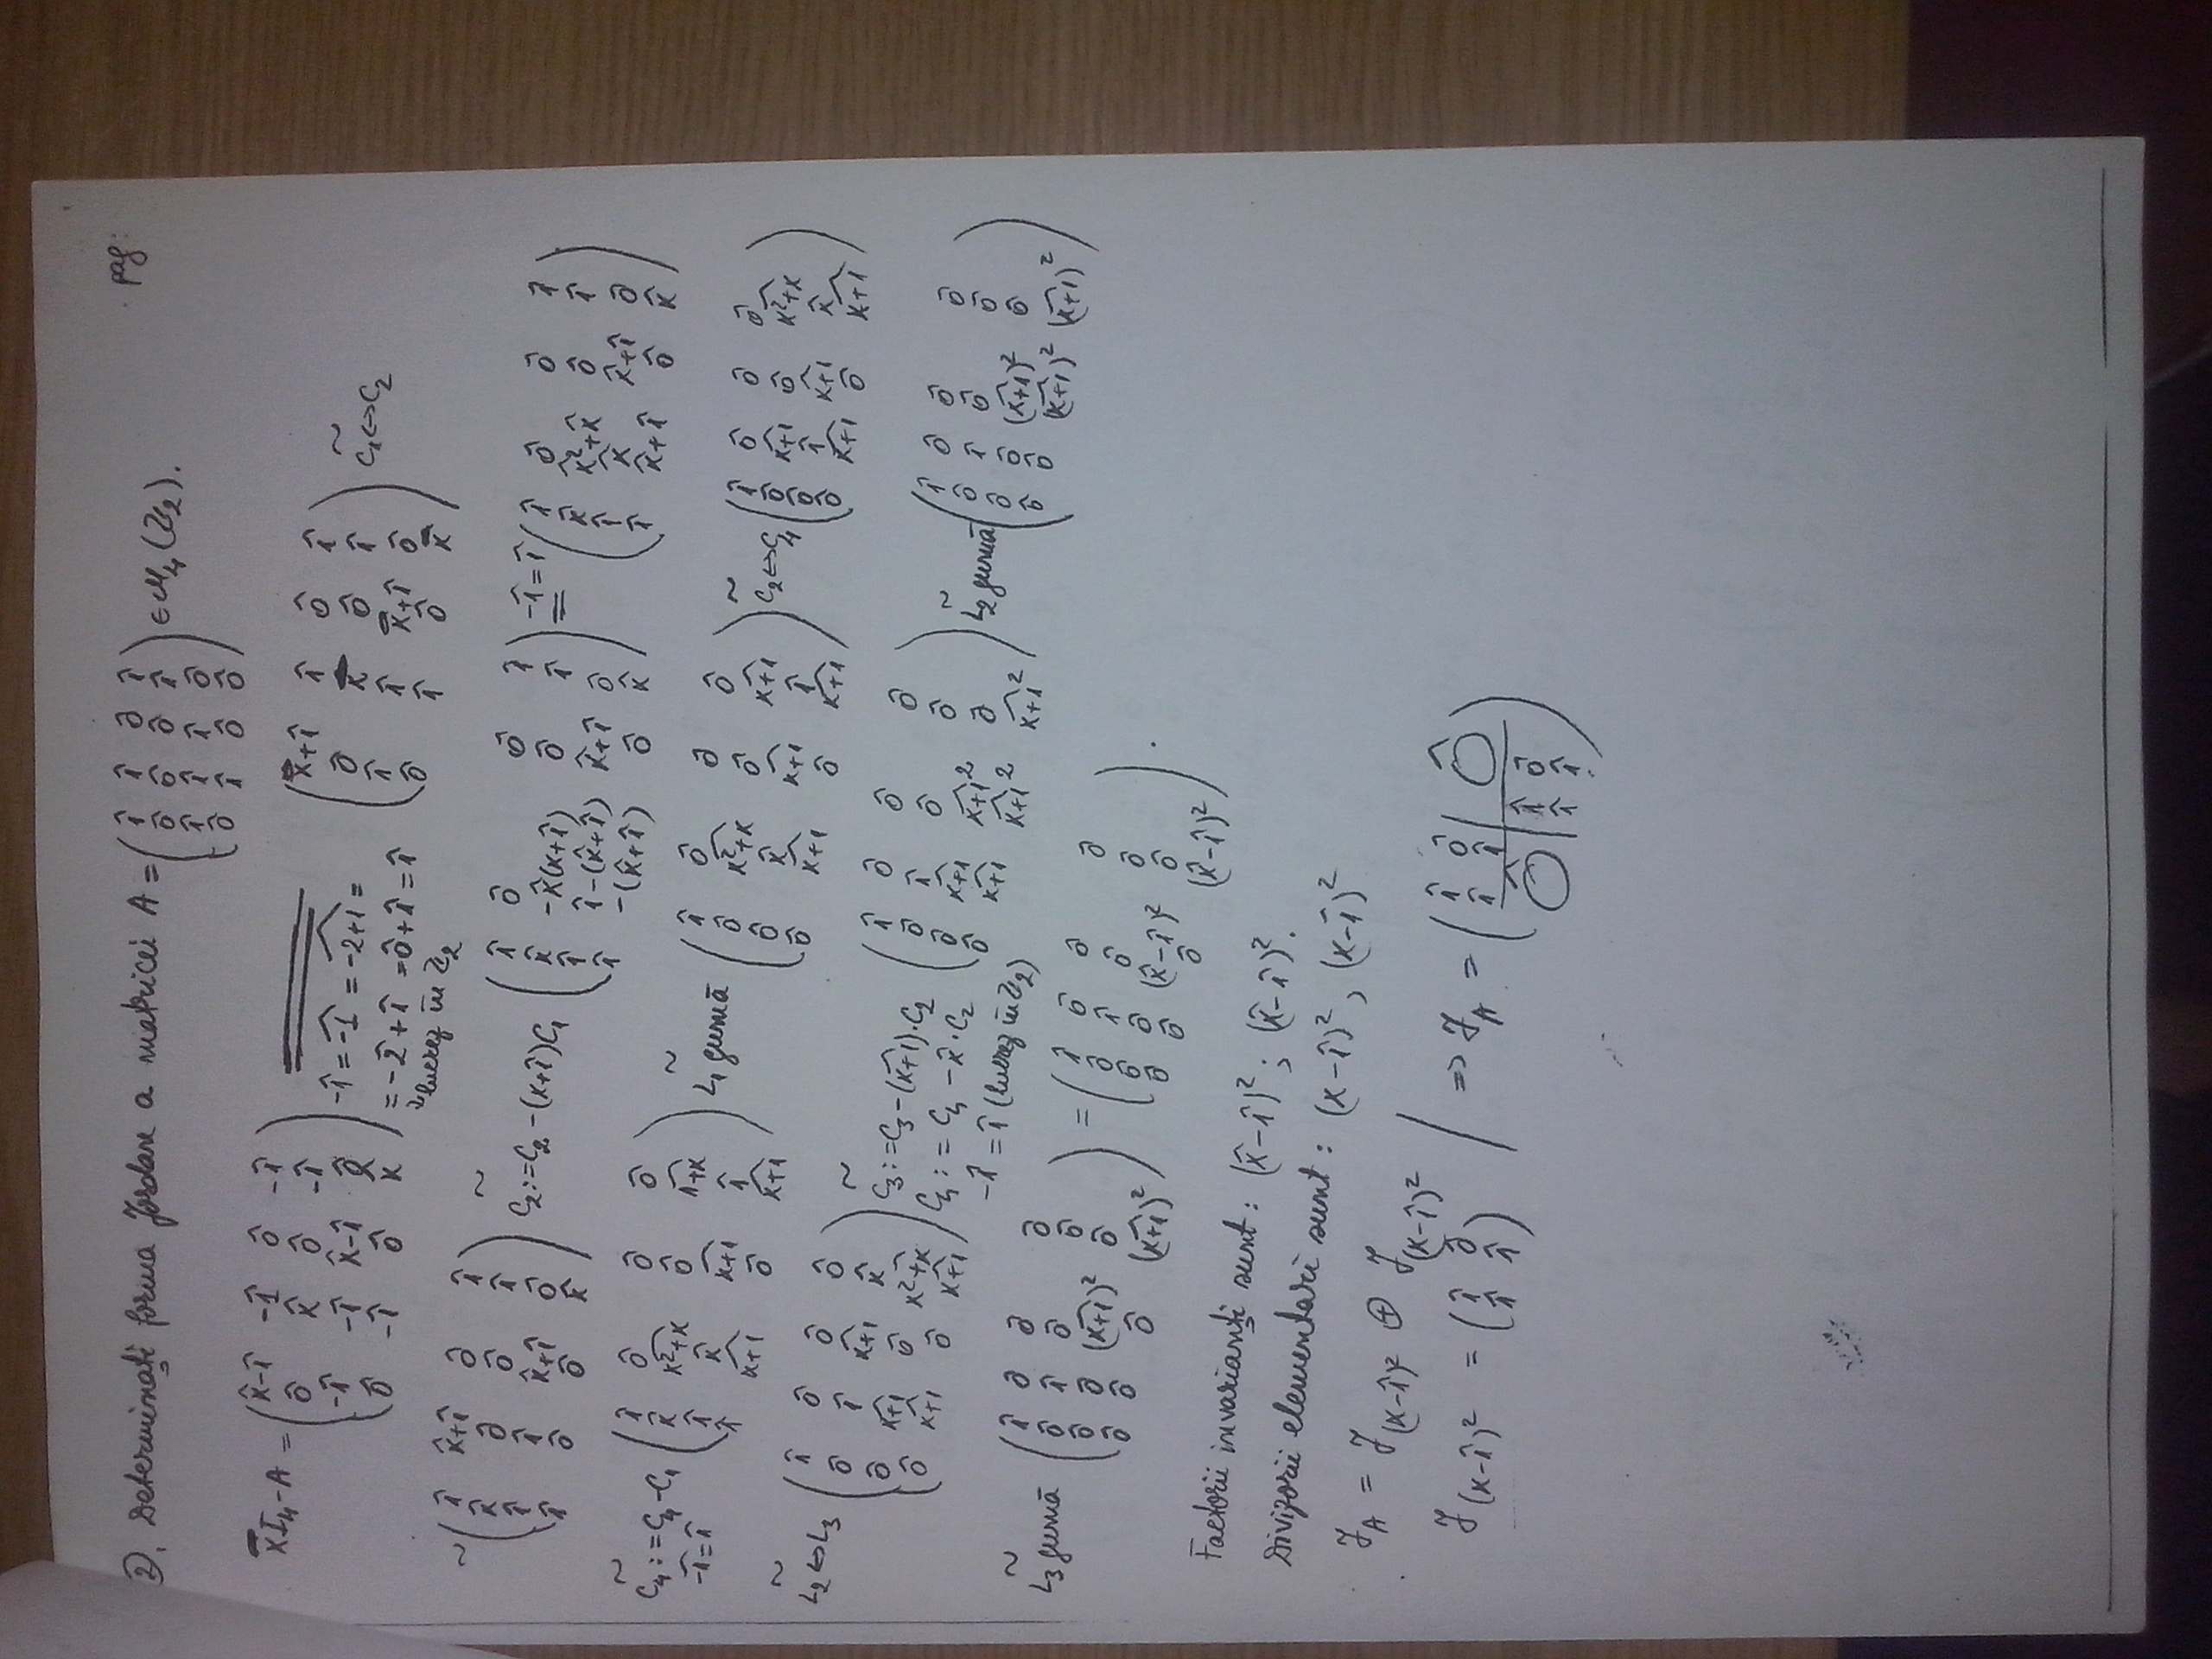 pag:
2). Determinați forma Jordan a matricei A = ( 1̂ 1̂ 0̂ 1̂ ; 0̂ 0̂ 0̂ 1̂ ; 1̂ 1̂ 1̂ 0̂ ; 0̂ 1̂ 0̂ 0̂ ) ∈ M₄(ℤ₂).
XI₄-A = ( x̂-1̂ -1̂ 0̂ -1̂ ; 0̂ x̂ 0̂ -1̂ ; -1̂ -1̂ x̂-1̂ 0̂ ; 0̂ -1̂ 0̂ x̂ ) ( x̂+1̂ 1̂ 0̂ 1̂ ; 0̂ x̂ 0̂ 1̂ ; 1̂ 1̂ x̂+1̂ 0̂ ; 0̂ 1̂ 0̂ x̂ ) ~ C₁↔C₂
-1̂ = -1̂ = -2+1 =
= -2̂+1̂ = 0̂+1̂ = 1̂
lucrez în ℤ₂
~ ( 1̂ x̂+1̂ 0̂ 1̂ ; x̂ 0̂ 0̂ 1̂ ; 1̂ 1̂ x̂+1̂ 0̂ ; 1̂ 0̂ 0̂ x̂ ) ~ C₂:=C₂-(x+1̂)C₁ ( 1̂ 0̂ 0̂ 1̂ ; x̂ -x̂(x+1̂) 0̂ 1̂ ; 1̂ 1̂-(x̂+1̂) x̂+1̂ 0̂ ; 1̂ -(x̂+1̂) 0̂ x̂ ) -1̂=1̂ = ( 1̂ 0̂ 0̂ 1̂ ; x̂ x̂²+x̂ 0̂ 1̂ ; 1̂ x̂ x̂+1̂ 0̂ ; 1̂ x̂+1̂ 0̂ x̂ )
~ C₄:=C₄-C₁ -1̂=1̂ ( 1̂ 0̂ 0̂ 0̂ ; x̂ x²+x 0̂ 1+x ; 1̂ x̂ x+1 1̂ ; 1̂ x+1 0̂ x+1 ) ~ L₁ gumă ( 1̂ 0̂ 0̂ 0̂ ; 0̂ x²+x 0̂ x+1 ; 0̂ x̂ x+1 1̂ ; 0̂ x+1 0̂ x+1 ) ~ C₂↔C₄ ( 1̂ 0̂ 0̂ 0̂ ; 0̂ x+1 0̂ x²+x ; 0̂ 1̂ x+1 x̂ ; 0̂ x+1 0̂ x+1 )
~ L₂↔L₃ ( 1̂ 0̂ 0̂ 0̂ ; 0̂ 1̂ x+1 x̂ ; 0̂ x+1 0̂ x²+x ; 0̂ x+1 0̂ x+1 ) ~ C₃:=C₃-(x+1)·C₂ ( 1̂ 0̂ 0̂ 0̂ ; 0̂ 1̂ 0̂ 0̂ ; 0̂ x+1 x+1² 0̂ ; 0̂ x+1 x+1² x+1² ) ~ L₂ gumă ( 1̂ 0̂ 0̂ 0̂ ; 0̂ 1̂ 0̂ 0̂ ; 0̂ 0̂ (x+1)² 0̂ ; 0̂ 0̂ (x+1)² (x+1)² )
C₄:=C₄-x̂·C₂
-1̂=1̂ (lucrez în ℤ₂)
~ L₃ gumă ( 1̂ 0̂ 0̂ 0̂ ; 0̂ 1̂ 0̂ 0̂ ; 0̂ 0̂ (x+1)² 0̂ ; 0̂ 0̂ 0̂ (x+1)² ) = ( 1̂ 0̂ 0̂ 0̂ ; 0̂ 1̂ 0̂ 0̂ ; 0̂ 0̂ (x̂-1̂)² 0̂ ; 0̂ 0̂ 0̂ (x̂-1̂)² ).
Factorii invarianți sunt: (x̂-1̂)² ; (x̂-1̂)².
Divizorii elementari sunt: (x-1̂)² , (x-1̂)²
J_A = J(x-1̂)² ⊕ J(x-1̂)²
J(x-1̂)² = ( 1̂ 0̂ ; 1̂ 1̂ ) ⇒ J_A = ( 1̂ 0̂ | 0̂ ; 1̂ 1̂ | ; 0̂ | 1̂ 0̂ ; | 1̂ 1̂ )